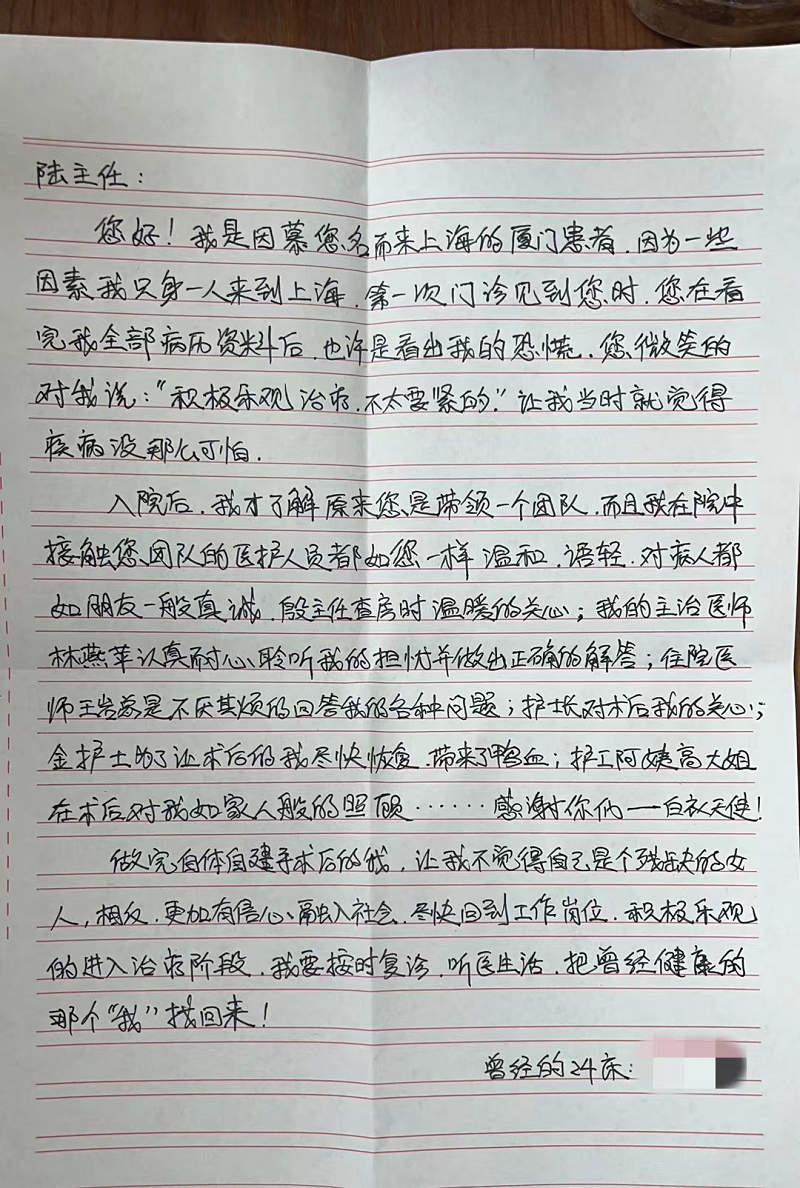 陆主任：
您好！我是因慕您名而来上海的厦门患者，因为一些
因素我只身一人来到上海，第一次门诊见到您时，您在看
完我全部病历资料后，也许是看出我的恐慌，您微笑的
对我说：“积极乐观治疗，不太要紧的.”让我当时就觉得
疾病没那么可怕.
入院后，我才了解原来您是带领一个团队，而且我在院中
接触您团队的医护人员都如您一样温和，语轻，对病人都
如朋友一般真诚，殷主任查房时温暖的关心；我的主治医师
林燕苹认真耐心聆听我的担忧并做出正确的解答；住院医
师王岩总是不厌其烦的回答我的各种问题；护士长对术后我的关心；
金护士为了让术后的我尽快恢复，带来了鸭血；护工阿姨高大姐
在术后对我如家人般的照顾……感谢你们——白衣天使！
做完自体自建手术后的我，让我不觉得自己是个残缺的女
人，相反，更加有信心融入社会，尽快回到工作岗位，积极乐观
的进入治疗阶段，我要按时复诊，听医生话，把曾经健康的
那个“我”找回来！
曾经的24床：